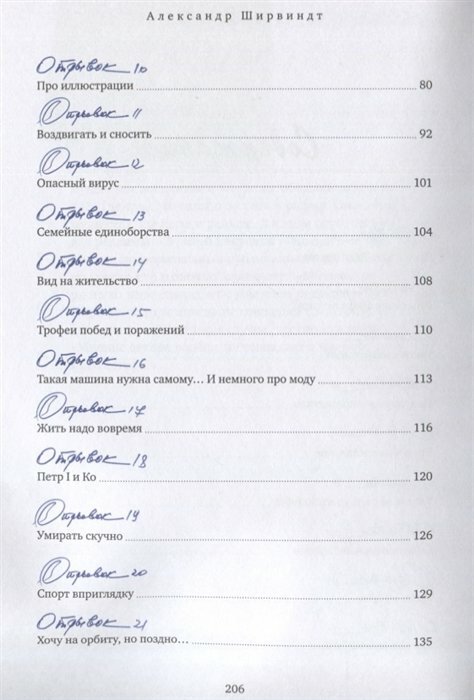 Александр Ширвиндт
Отрывок 10
Про иллюстрации 80
Отрывок 11
Воздвигать и сносить 92
Отрывок 12
Опасный вирус 101
Отрывок 13
Семейные единоборства 104
Отрывок 14
Вид на жительство 108
Отрывок 15
Трофеи побед и поражений 110
Отрывок 16
Такая машина нужна самому... И немного про моду 113
Отрывок 17
Жить надо вовремя 116
Отрывок 18
Петр I и Ко 120
Отрывок 19
Умирать скучно 126
Отрывок 20
Спорт вприглядку 129
Отрывок 21
Хочу на орбиту, но поздно... 135
206